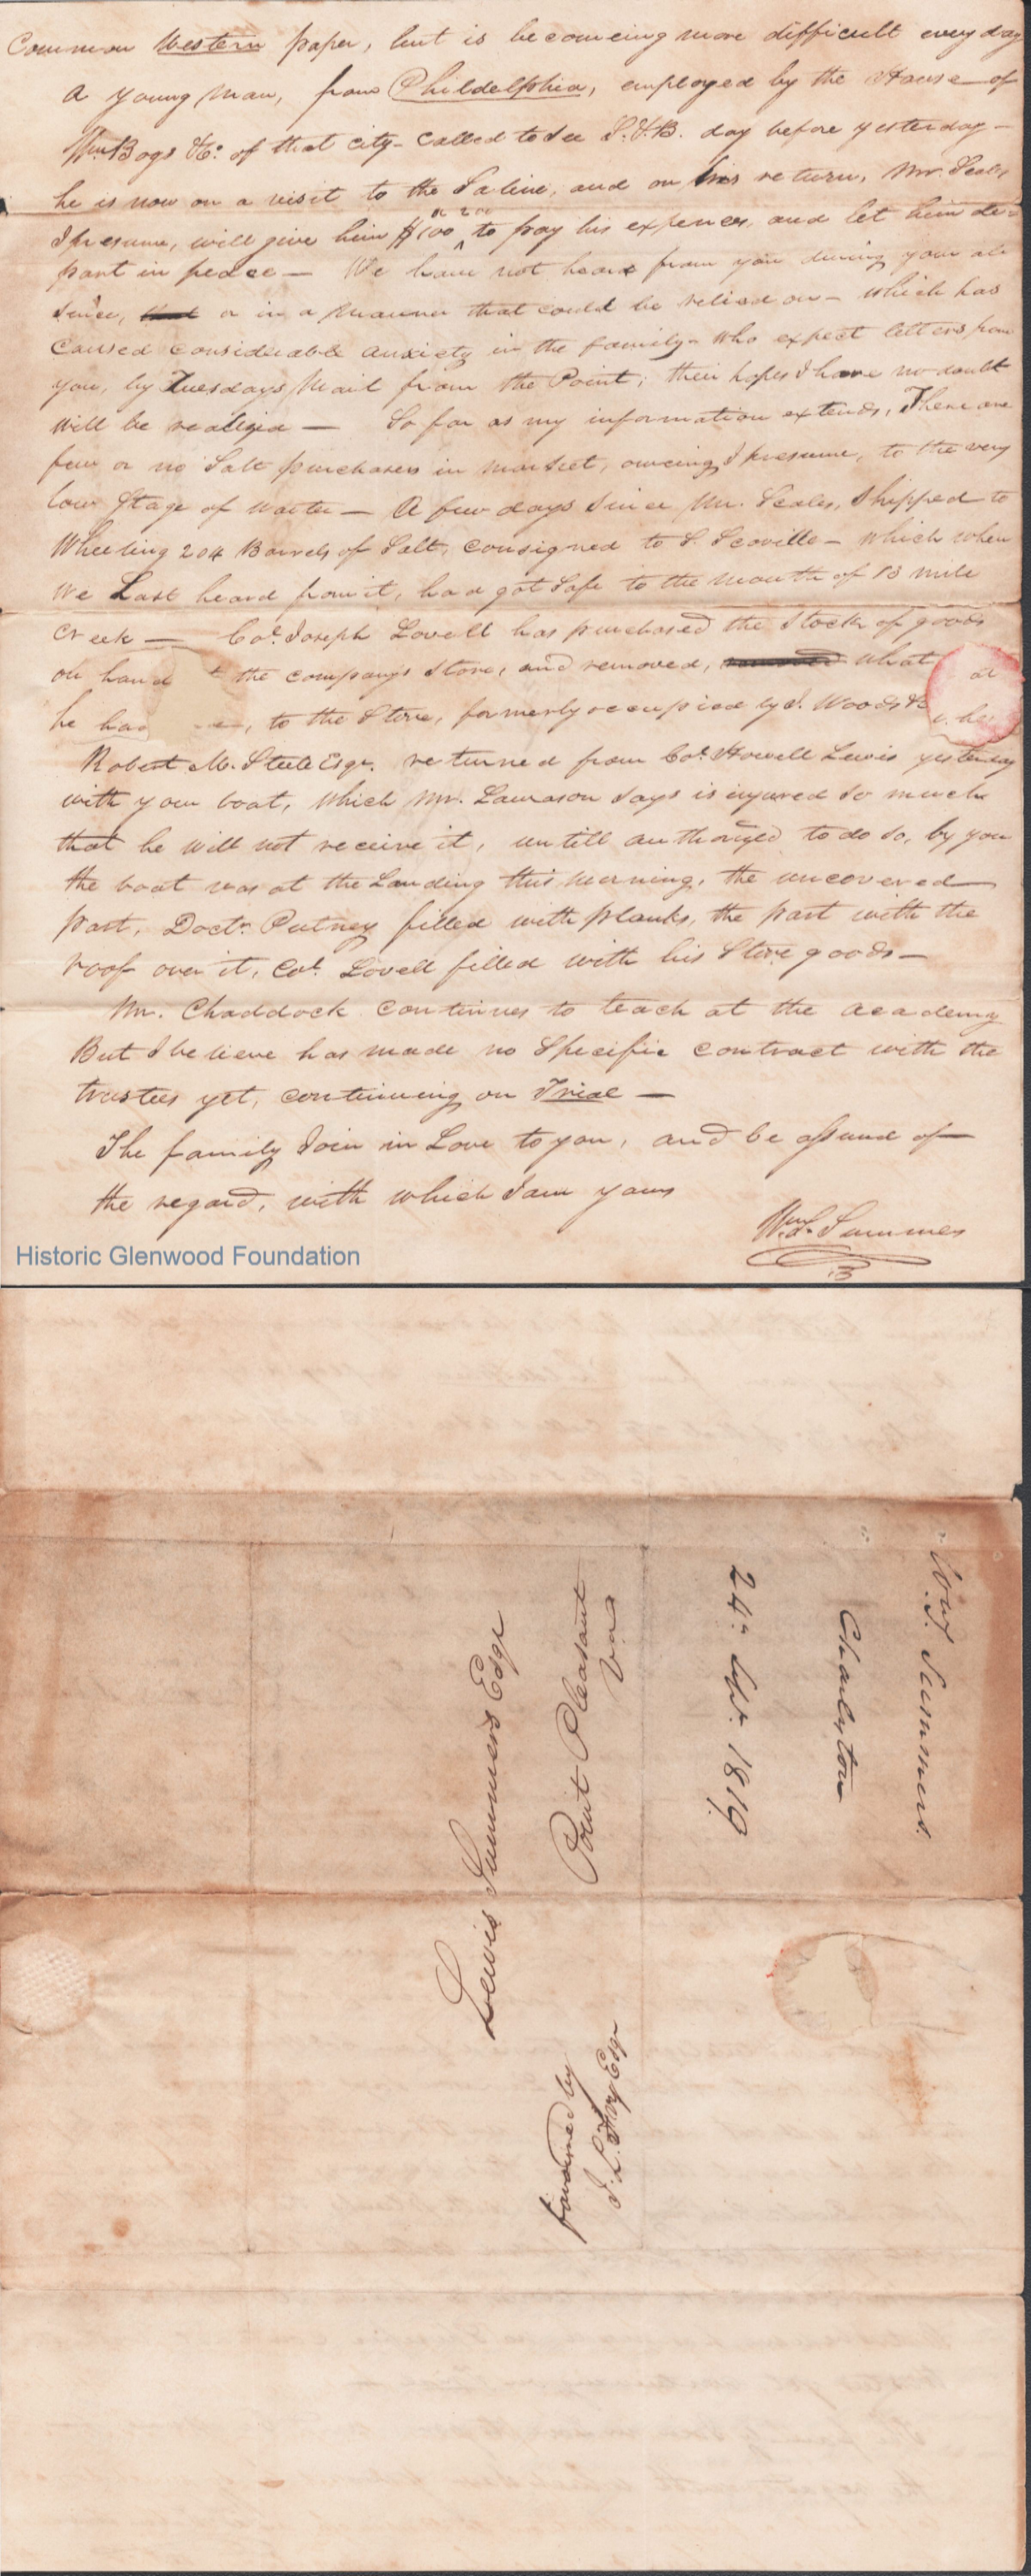 Common Western paper, but is becomeing more difficult every day
A young Man, from Phildelphia, employed by the House of
Wm Bogs & Co. of that city - called to see day before yesterday -
he is now on a visit to the Saline, and on his return, Mr. Seales
I presume, will give him $100 to pay his expences, and let him de=
part in peace — We have not heard from you during your ab
sence, or in a manner that could be relied on - which has
caused considerable anxiety in the family - who expect letters from
you, by Tuesdays Mail from the Point; their hopes I have no doubt
will be realized — So far as my information extends, There are
few or no Salt purchasers in market, oweing I presume, to the very
low Stage of water — A few days since Mr. Seales, Shipped to
Wheeling 204 Barrels of Salt, consigned to S. Scoville - which when
we Last heard from it, had got Safe to the mouth of 13 mile
Creek — Col. Joseph Lovell has purchased the Stock of goods
on hand the company's Store, and removed, what
he had to the Store, formerly occupied by J. Woods &
Robert M. Steele Esqr. returned from Col. Howell Lewis yesterday
with your boat, which Mr. Lawrason says is injured so much
that he will not receive it, untill authorized to do so, by you
the boat was at the Landing this morning, the uncovered
part, Doctr. Putney filled with planks, the part with the
roof over it, Col. Lovell filled with his Store goods —
Mr. Chaddock continues to teach at the academy
But I believe has made no Specific contract with the
trustees yet, continueing on Trial —
The family Join in Love to you, and be assured of
the regard, with which I am yours
Wm. S. Summers
Historic Glenwood Foundation
Wm. S. Summers.
Charleston
24 Sept. 1819
Lewis Summers Esqr
Point Pleasant
Va
favoured by
J. L. Fry Esqr